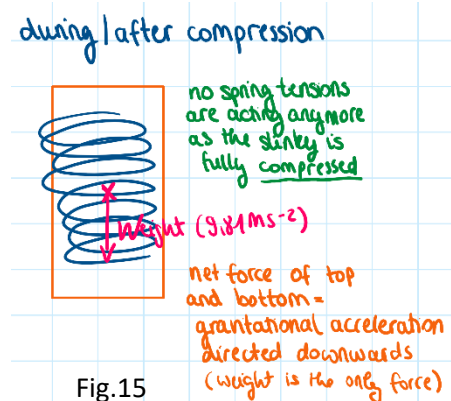 during/after compression
no spring tensions
are acting anymore
as the slinky is
fully compressed
Weight (9,81ms-2)
net force of top
and bottom =
grantational acceleration
directed downwards
(weight is the only force)
Fig.15